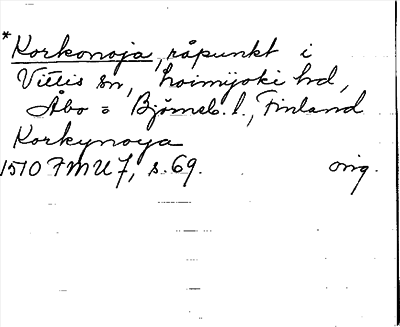 *Korkonoja, råpunkt i
Vittis sn, Loimijoki hd,
Åbo o Björneb. l., Finland
Korkynoya
1510 FMU 7, s. 69. orig.